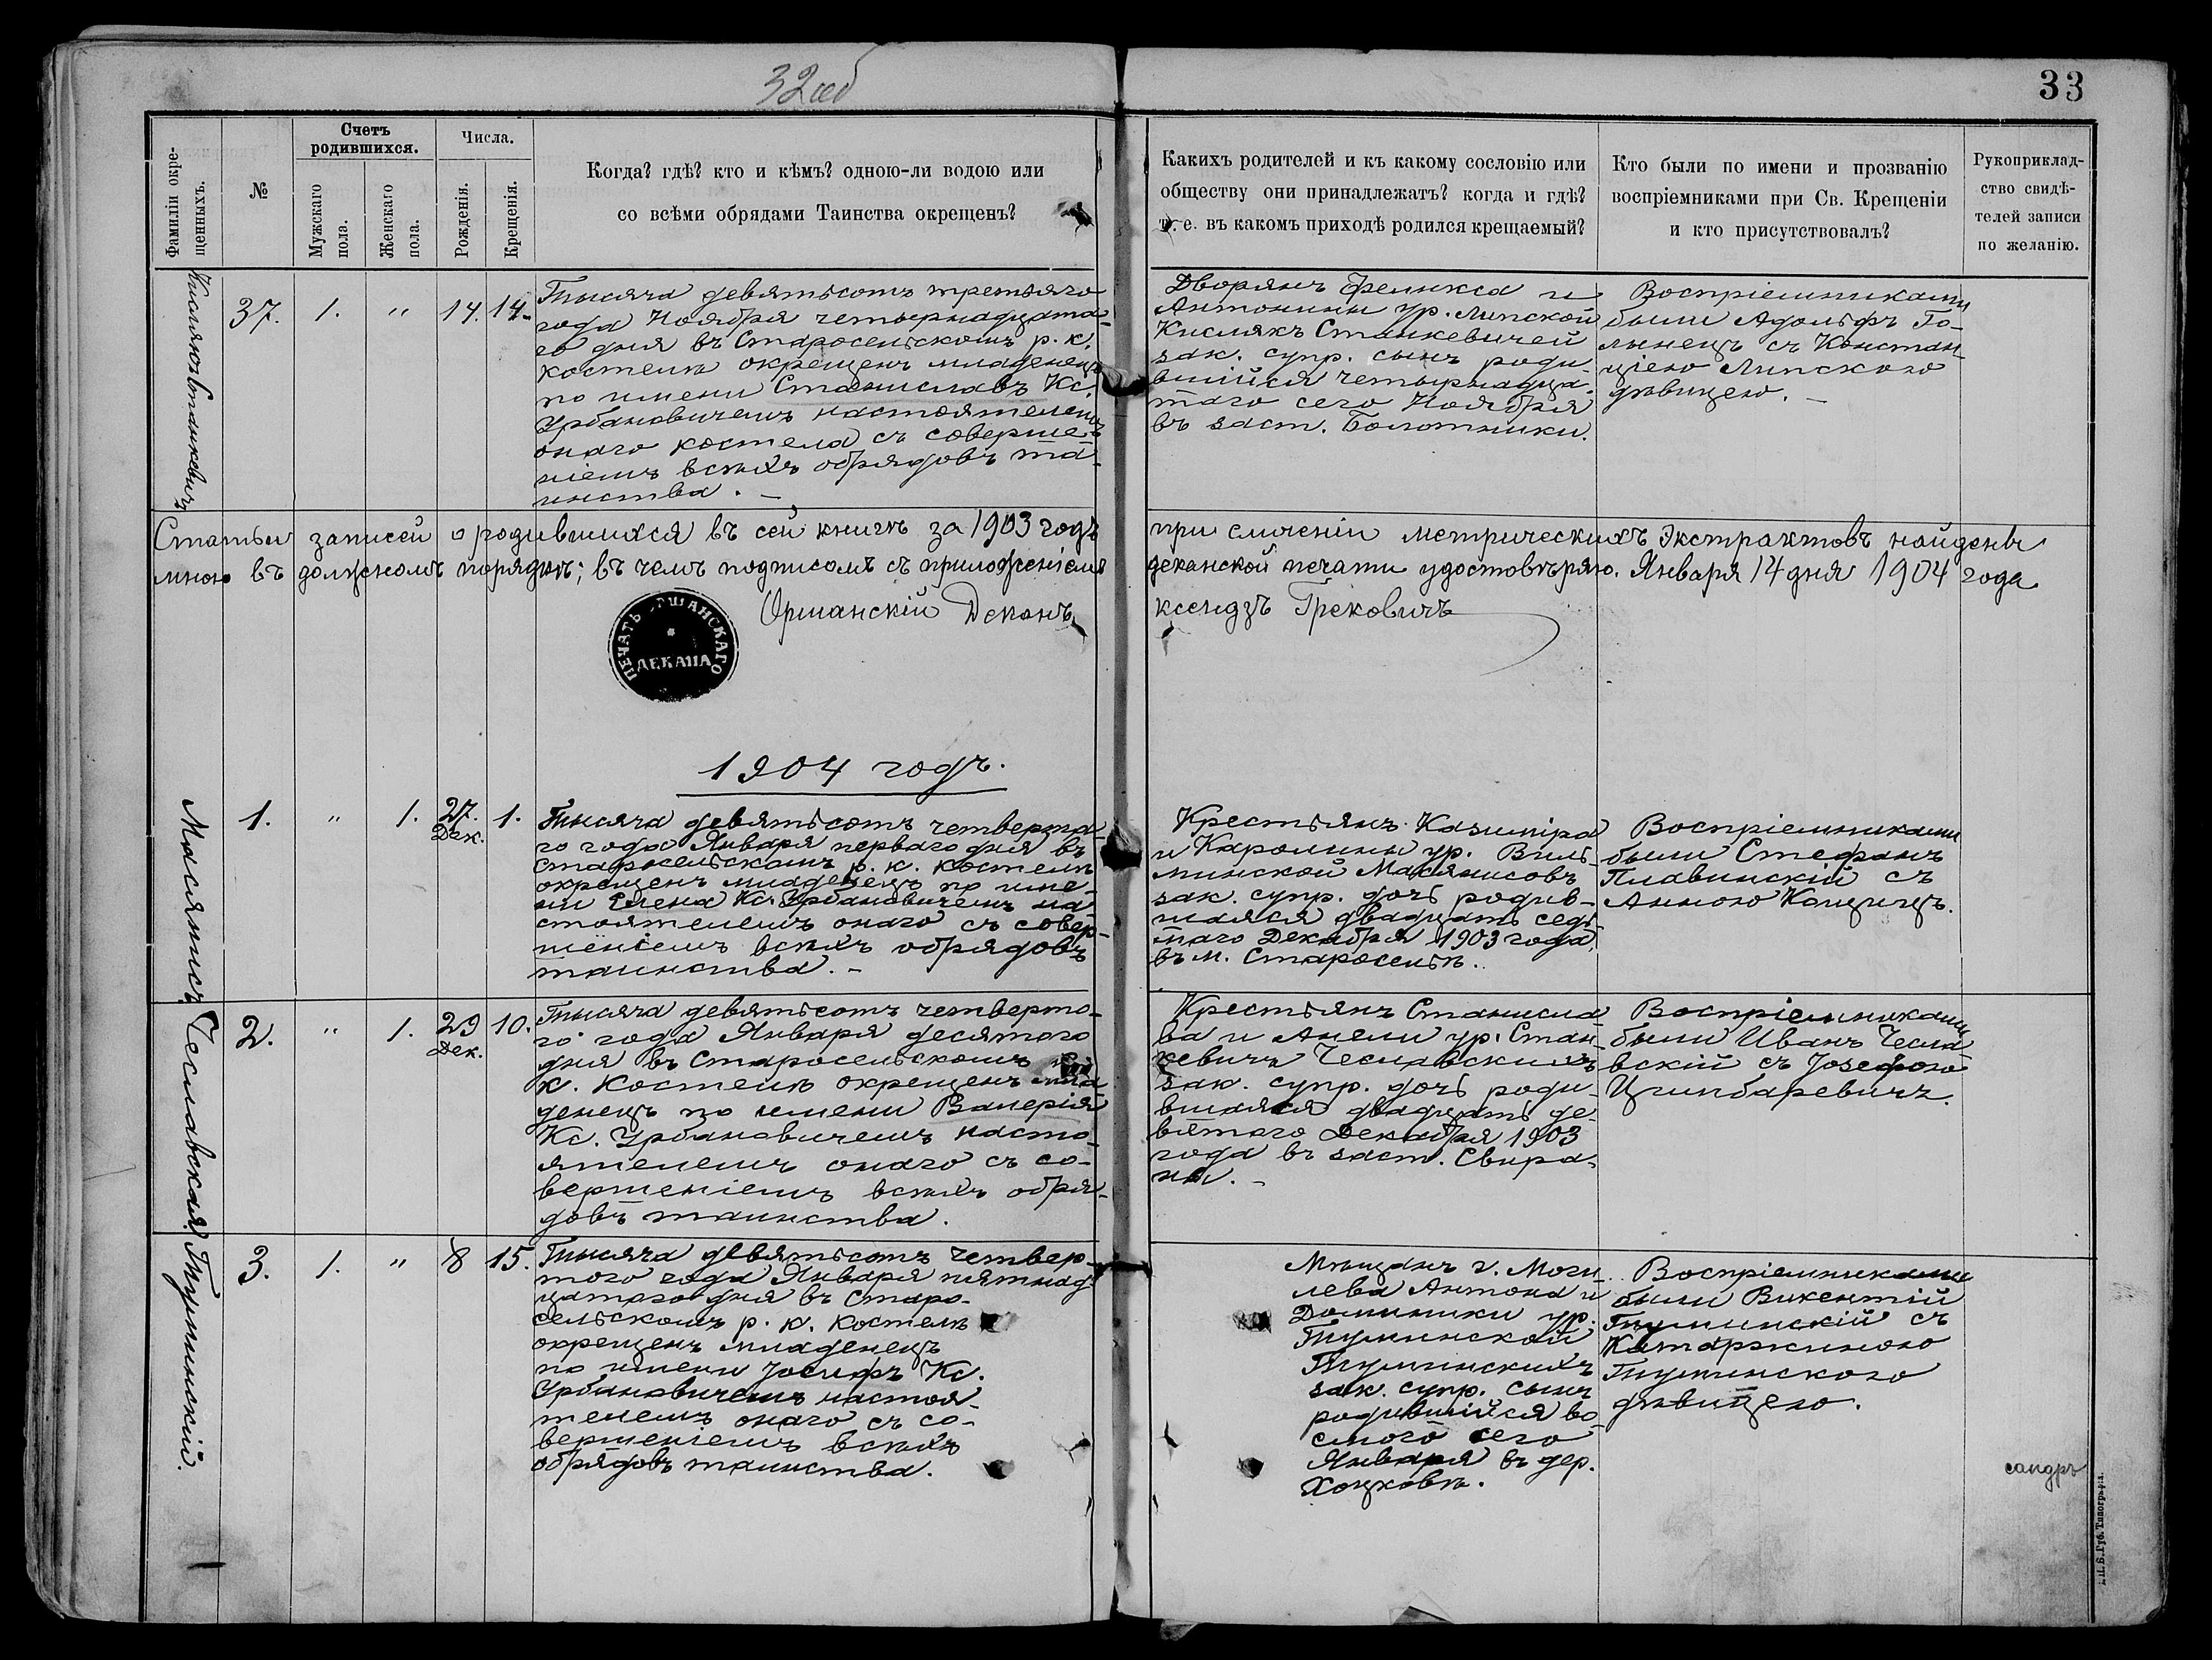 32 об
33
Фамиліи окре-
щенныхъ.
№
Счетъ
родившихся.
Мужскаго
пола.
Женскаго
пола.
Числа.
Рожденія.
Крещенія.
Когда? гдѣ? кто и кѣмъ? одною-ли водою или
со всѣми обрядами Таинства окрещенъ?
Какихъ родителей и къ какому сословію или
обществу они принадлежатъ? когда и гдѣ?
т. е. въ какомъ приходѣ родился крещаемый?
Кто были по имени и прозванію
воспріемниками при Св. Крещеніи
и кто присутствовалъ?
Рукоприклад-
ство свидѣ-
телей записи
по желанію.
Кислякъ Станкевичъ
37. 1. " 14. 14.
Тысяча девятьсотъ третьяго
года Ноября четырнадцата-
го дня въ Старосельскомъ р. к.
костелѣ окрещенъ младенецъ
по имени Станиславъ Кс.
Урбановичемъ настоятелемъ
онаго костела съ соверше-
ніемъ всѣхъ обрядовъ та-
инства. –
Дворянъ Феликса и
Антонины ур. Липской
Кислякъ Станкевичей
зак. супр. сынъ роди-
вшійся четырнадца-
таго сего Ноября
въ заст. Болотники.
Воспріемниками
были Адольфъ Го-
лынецъ съ Констан-
ціею Липскою
дѣвицею. –
Статьи записей о родившихся въ сей книгѣ за 1903 годъ при сличеніи метрическихъ экстрактовъ найдены
мною въ должномъ порядкѣ; въ чемъ подписомъ съ приложеніемъ деканской печати удостовѣряю. Января 14 дня 1904 года
Оршанскій Деканъ ксендзъ Грековичъ
ПЕЧАТЬ ОРШАНСКАГО
ДЕКАНА
1904 годъ.
Масянисъ
1. " 1. 27. Дек. 1.
Тысяча девятьсотъ четверта-
го года Января перваго дня въ
Старосельскомъ р. к. костелѣ
окрещенъ младенецъ по име-
ни Елена Кс. Урбановичемъ на-
стоятелемъ онаго съ совер-
шеніемъ всѣхъ обрядовъ
таинства. –
Крестьянъ Казиміра
и Каролины ур. Виль-
минской Масянисовъ
зак. супр. дочь родив-
шаяся двадцать седь-
маго Декабря 1903 года,
въ м. Старосельѣ.
Воспріемниками
были Стефанъ
Плавинскій съ
Анною Кащицъ.
Чеславская.
2. " 1. 29 Дек. 10.
Тысяча девятьсотъ четверто-
го года Января десятого
дня въ Старосельскомъ р.
к. костелѣ окрещенъ мла-
денецъ по имени Валерія
Кс. Урбановичемъ насто-
ятелемъ онаго съ со-
вершеніемъ всѣхъ обря-
довъ таинства.
Крестьянъ Станисла-
ва и Анели ур. Стан-
кевичъ Чеславскихъ
зак. супр. дочь роди-
вшаяся двадцать де-
вятого Декабря 1903
года въ заст. Свира-
нѣ. –
Воспріемниками
были Иванъ Чесла-
вскій съ Јозефою
Цимбаревичъ.
Туминскій.
3. 1. " 8 15.
Тысяча девятьсотъ четвер-
того года Января пятнад-
цатого дня въ Старо-
сельскомъ р. к. костелѣ
окрещенъ младенецъ
по имени Јосифъ Кс.
Урбановичемъ настоя-
телемъ онаго съ со-
вершеніемъ всѣхъ
обрядовъ таинства.
Мѣщанъ г. Моги-
лева Антона и
Доминики ур.
Туминской
Туминскихъ
зак. супр. сынъ
родившійся во-
сьмого сего
Января въ дер.
Хоцковѣ.
Воспріемниками
были Викентій
Туминскій съ
Катаржиною
Туминскою
дѣвицею.
сандръ